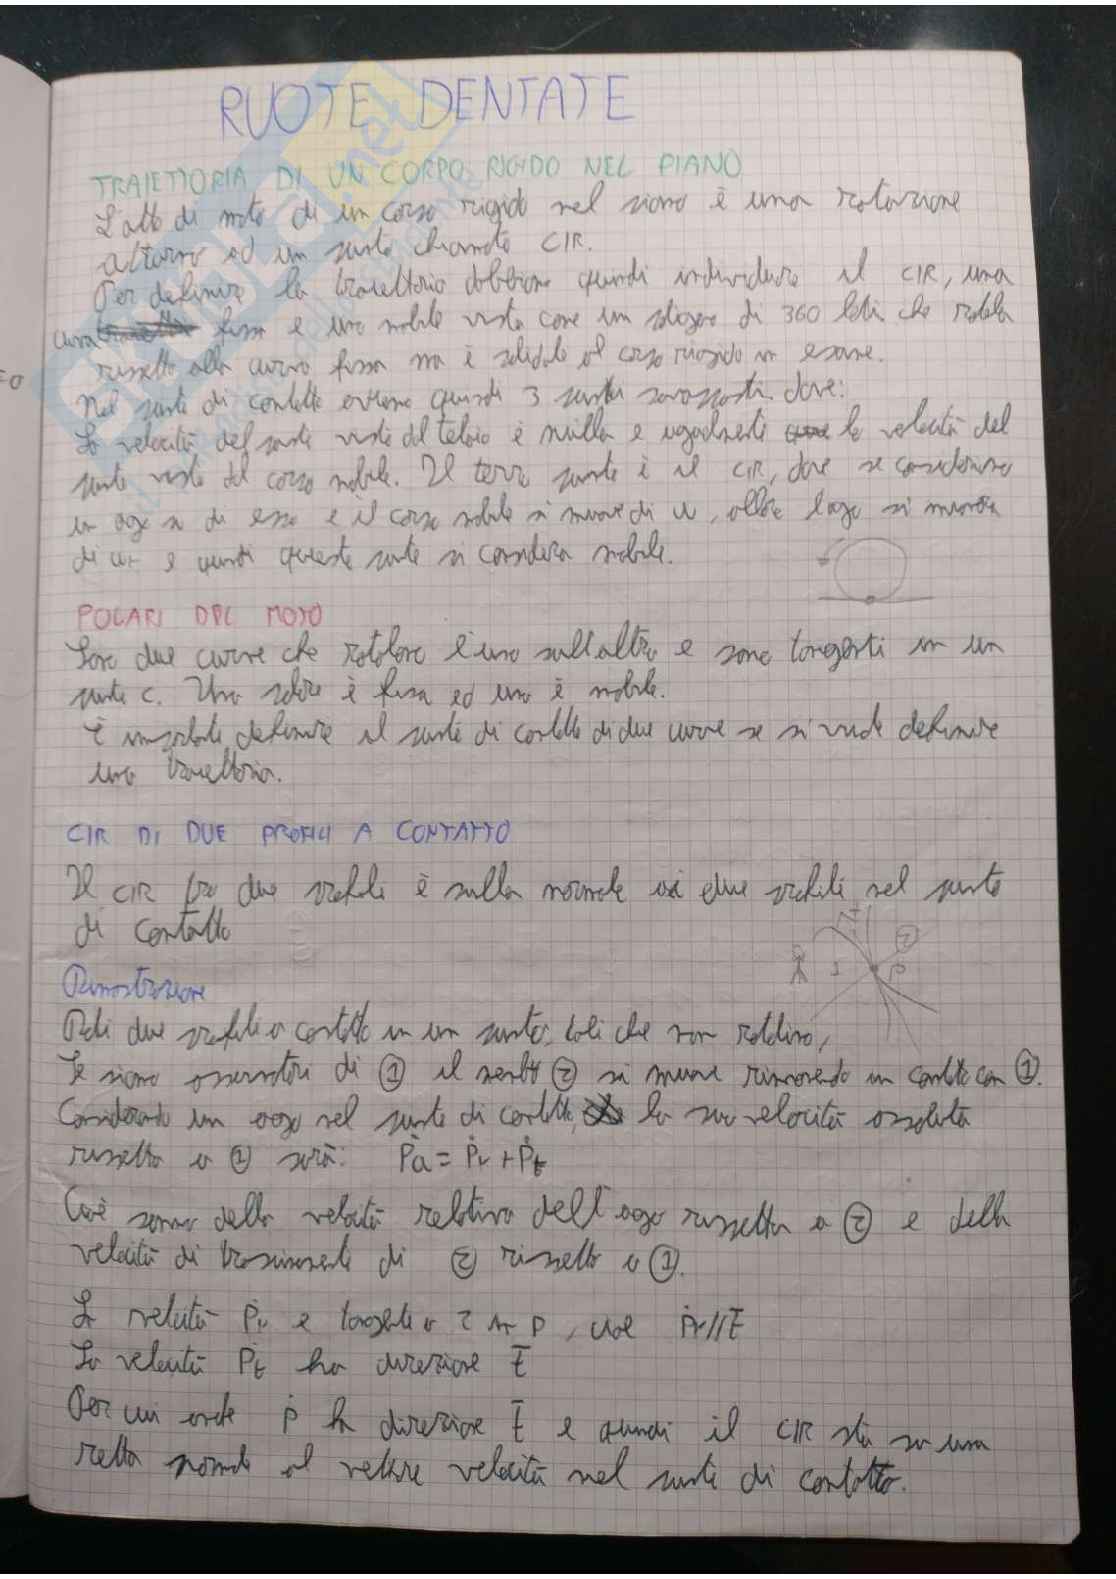 RUOTE DENTATE
TRAIETTORIA DI UN CORPO RIGIDO NEL PIANO
L'atto di moto di un corpo rigido nel piano è una rotazione
attorno ad un punto chiamato CIR.
Per definire la traiettoria dobbiamo quindi individuare il CIR, una
curva fissa e una mobile vista come un poligono di 360 lati che rotola
rispetto alla curva fissa ma è solidale al corpo rigido in esame.
Nel punto di contatto avremo quindi 3 punti sovrapposti dove:
La velocità del punto visto dal telaio è nulla e ugualmente la velocità del
punto visto dal corpo mobile. Il terzo punto è il CIR, dove se consideriamo
un ago su di esso e il corpo mobile si muove di v, allora l'ago si muoverà
di vt e quindi questo punto si considera mobile.
POLARI DEL MOTO
Sono due curve che rotolano l'una sull'altra e sono tangenti in un
punto c. Una polare è fissa ed una è mobile.
È importante definire il punto di contatto di due curve se si vuole definire
una traiettoria.
CIR DI DUE PROFILI A CONTATTO
Il CIR fra due profili è sulla normale ai due profili nel punto
di contatto
Dimostrazione
Presi due profili a contatto in un punto, tali che non rotolino,
Se siamo osservatori di ① il ② si muove rimanendo in contatto con ①.
Considerando un ago nel punto di contatto, la sua velocità assoluta
rispetto a ① sarà: Ṗa = Ṗr + Ṗt
Cioè somma della velocità relativa dell'ago rispetto a ② e della
velocità di trascinamento di ② rispetto a ①.
La velocità Ṗr è tangente a 2 in P, cioè Ṗr // t̄
La velocità Ṗt ha direzione t̄
Per cui anche Ṗ ha direzione t̄ e quindi il CIR sta su una
retta normale al vettore velocità nel punto di contatto.